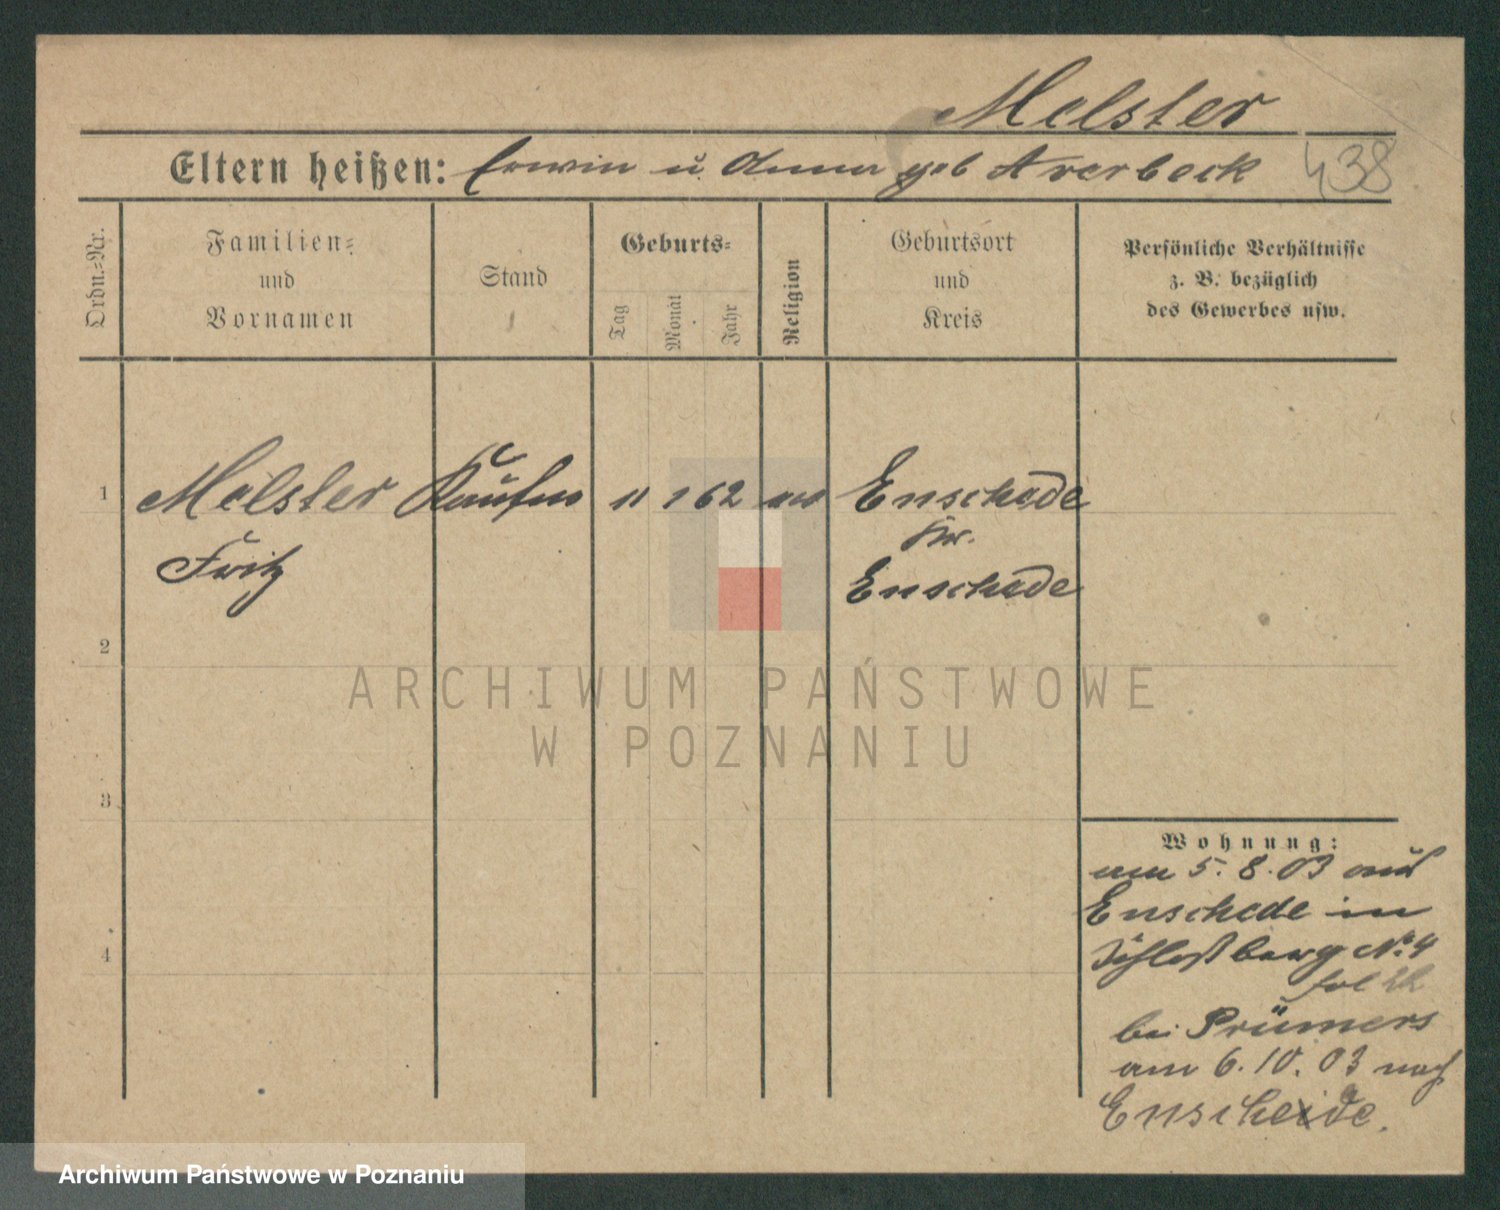 Melster
Eltern heißen: Erwin u Anna geb Averbeck 438
Ordn.-Nr.
Familien-
und
Vornamen
Stand
Geburts-
Tag
Monat
Jahr
Religion
Geburtsort
und
Kreis
Persönliche Verhältnisse
z. B. bezüglich
des Gewerbes usw.
1 Melster Kaufm 11 1 62 Enschede
Fritz
Kr.
Enschede
2
3
4
ARCHIWUM PAŃSTWOWE
W POZNANIU
Wohnung:
am 5.8.03 aus
Enschede in
Schloßberg No. 4
bei Prümers
am 6.10.03 nach
Enscheide.
Archiwum Państwowe w Poznaniu